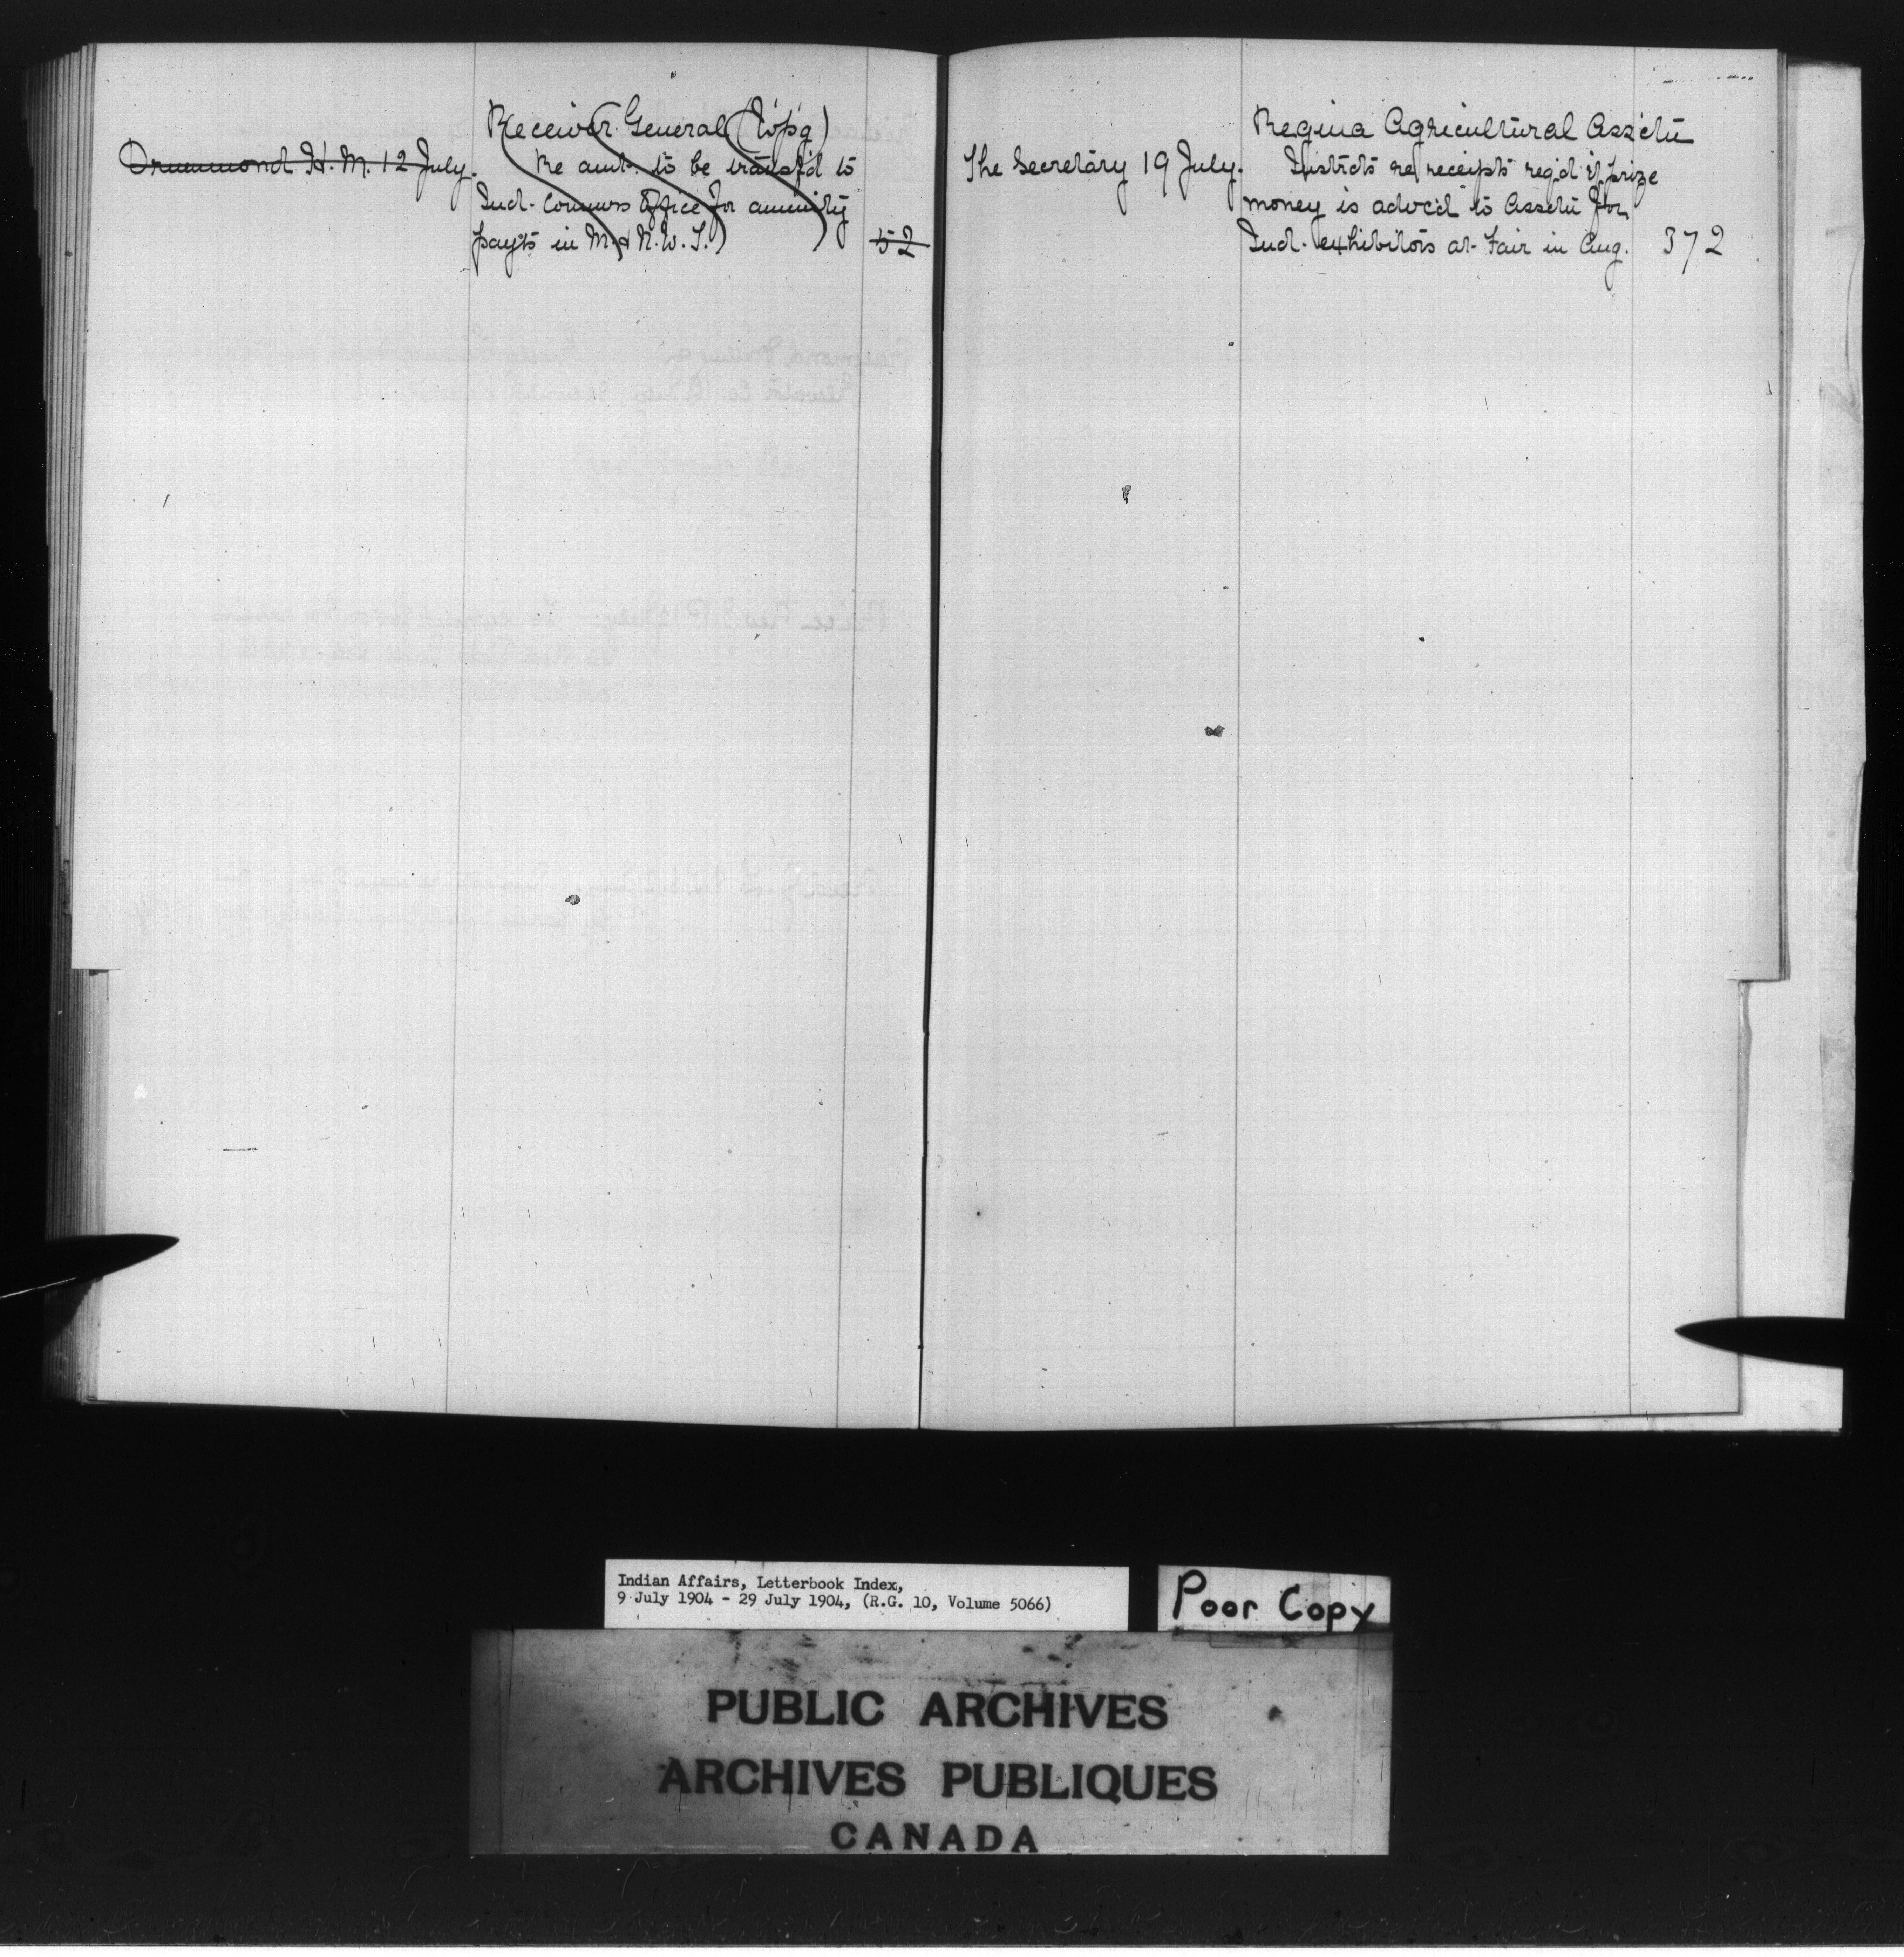 Receiver General (W'p'g)
Drummond H. M. 12 July. Re amt. to be transf'd to
Ind. Commrs Office for annuity
payts in M. & N.W.T. 52
Regina Agricultural Ass'ctn
The Secretary 19 July. re receipts req'd if prize
money is advc'd to Assctn for
Ind. exhibitors at Fair in Aug. 372
Indian Affairs, Letterbook Index,
9 July 1904 - 29 July 1904, (R.G. 10, Volume 5066)
Poor Copy
PUBLIC ARCHIVES
ARCHIVES PUBLIQUES
CANADA